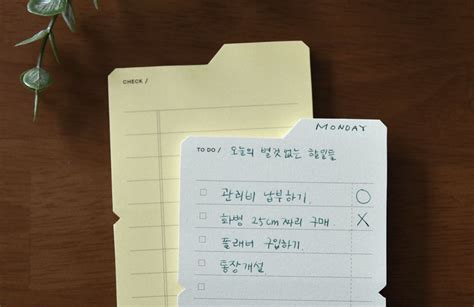 CHECK /
MONDAY
TO DO / 오늘의 별것없는 할일들
관리비 납부하기. O
화병 25cm 짜리 구매. X
플래너 구입하기.
통장개설.